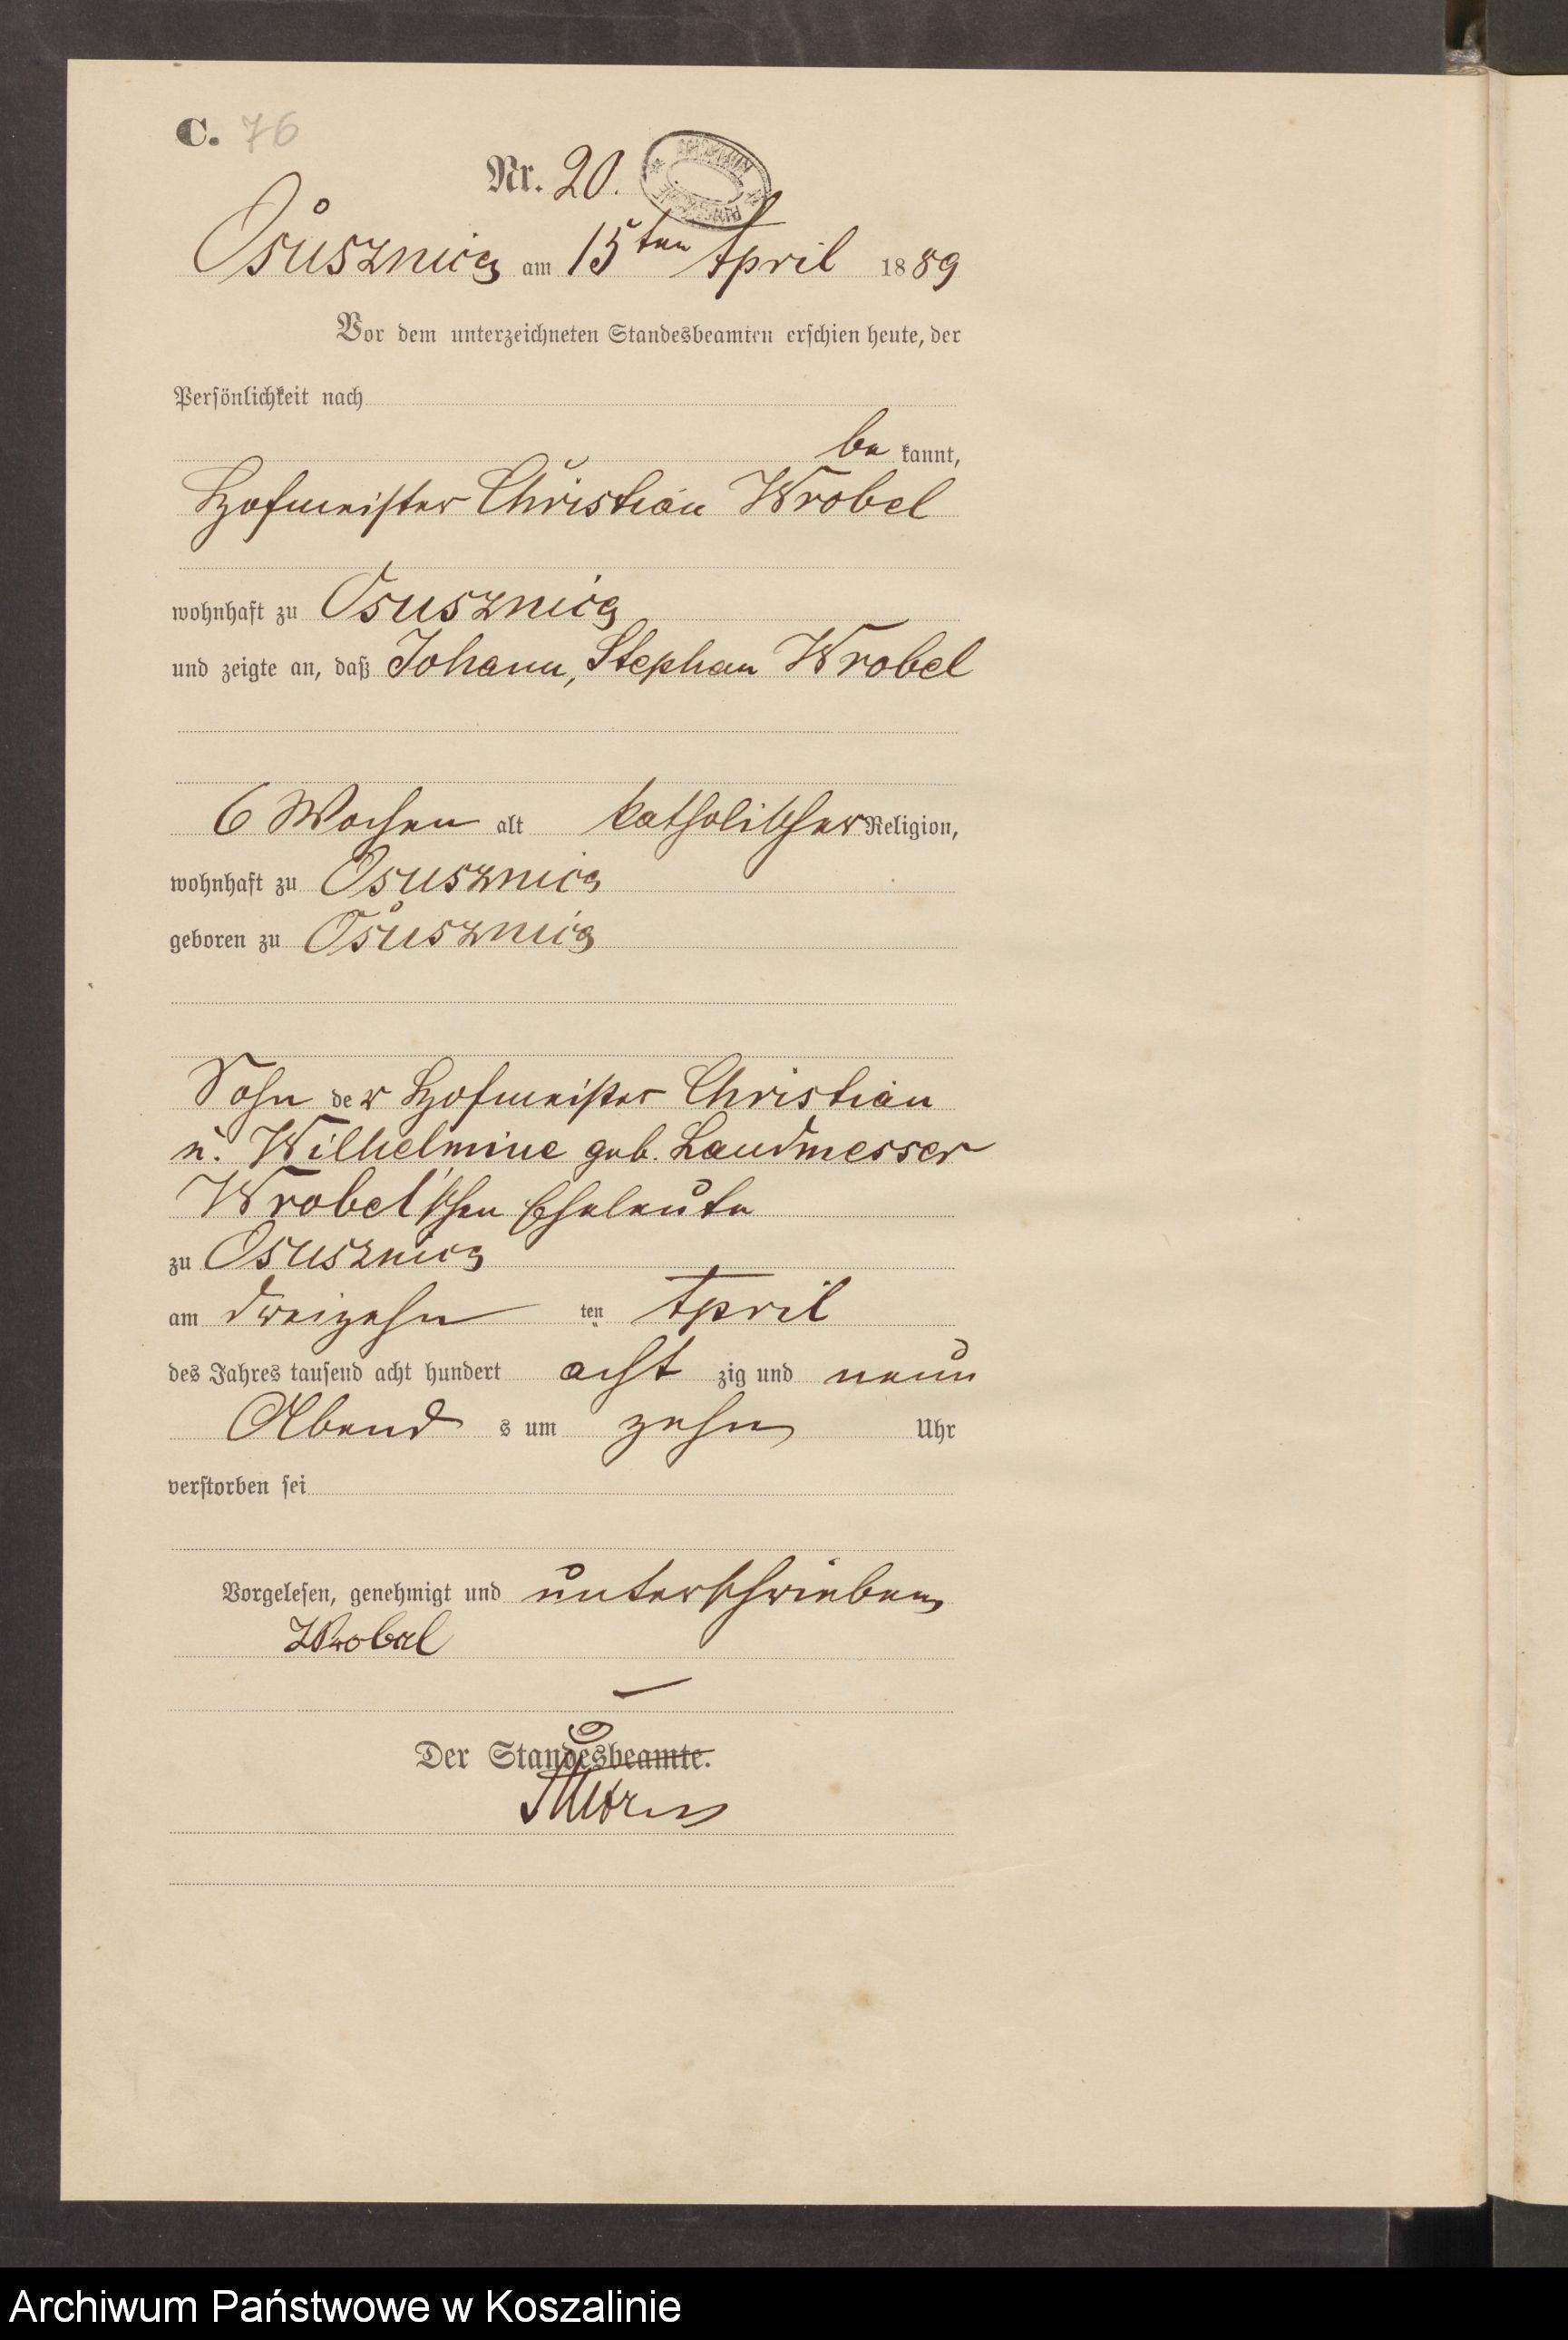 C. 76
Nr. 20.
Osusznica am 15ten April 1889
Vor dem unterzeichneten Standesbeamten erschien heute, der
Persönlichkeit nach
be kannt,
Hofmeister Christian Wrobel
wohnhaft zu Osusznica
und zeigte an, daß Johann, Stephan Wrobel
6 Wochen alt katholischer Religion,
wohnhaft zu Osusznica
geboren zu Osusznica
Sohn der Hofmeister Christian
u. Wilhelmine geb. Landmesser
Wrobel'schen Eheleute
zu Osusznica
am dreizehn ten April
des Jahres tausend acht hundert acht zig und neun
Abend s um zehn Uhr
verstorben sei
Vorgelesen, genehmigt und unterschrieben
Wrobel
Der Standesbeamte.
Archiwum Państwowe w Koszalinie